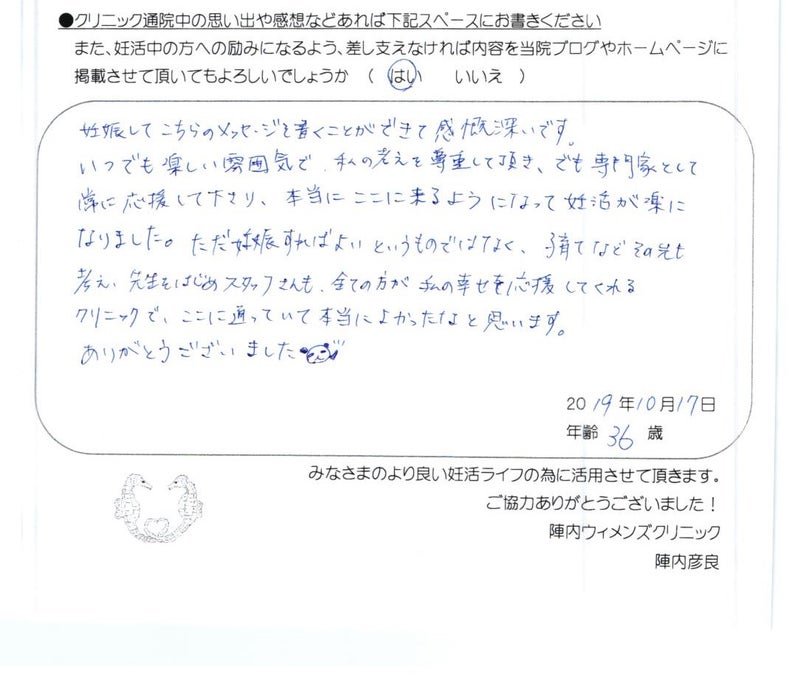 ●クリニック通院中の思い出や感想などあれば下記スペースにお書きください
また、妊活中の方への励みになるよう、差し支えなければ内容を当院ブログやホームページに
掲載させて頂いてもよろしいでしょうか （ はい いいえ ）
妊娠してこちらのメッセージを書くことができて感慨深いです。
いつでも楽しい雰囲気で、私の考えを尊重して頂き、でも専門家として
常に応援して下さり、本当にここに来るようになって妊活が楽に
なりました。ただ妊娠すればよいというものではなく、子育てなどその先も
考え、先生をはじめスタッフさんも、全ての方が私の幸せを応援してくれる
クリニックで、ここに通っていて本当によかったなと思います。
ありがとうございました
2019年10月17日
年齢 36 歳
みなさまのより良い妊活ライフの為に活用させて頂きます。
ご協力ありがとうございました！
陣内ウィメンズクリニック
陣内彦良